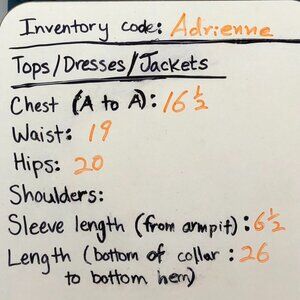 Inventory code: Adrienne
Tops/Dresses/Jackets
Chest (A to A): 16 1/2
Waist: 19
Hips: 20
Shoulders:
Sleeve length (from armpit): 6 1/2
Length (bottom of collar : 26
to bottom hem)